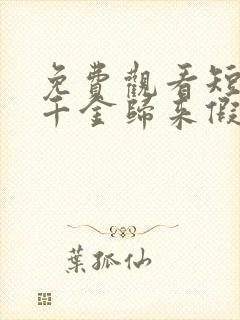 免費觀看短
千金歸來假
葉孤仙